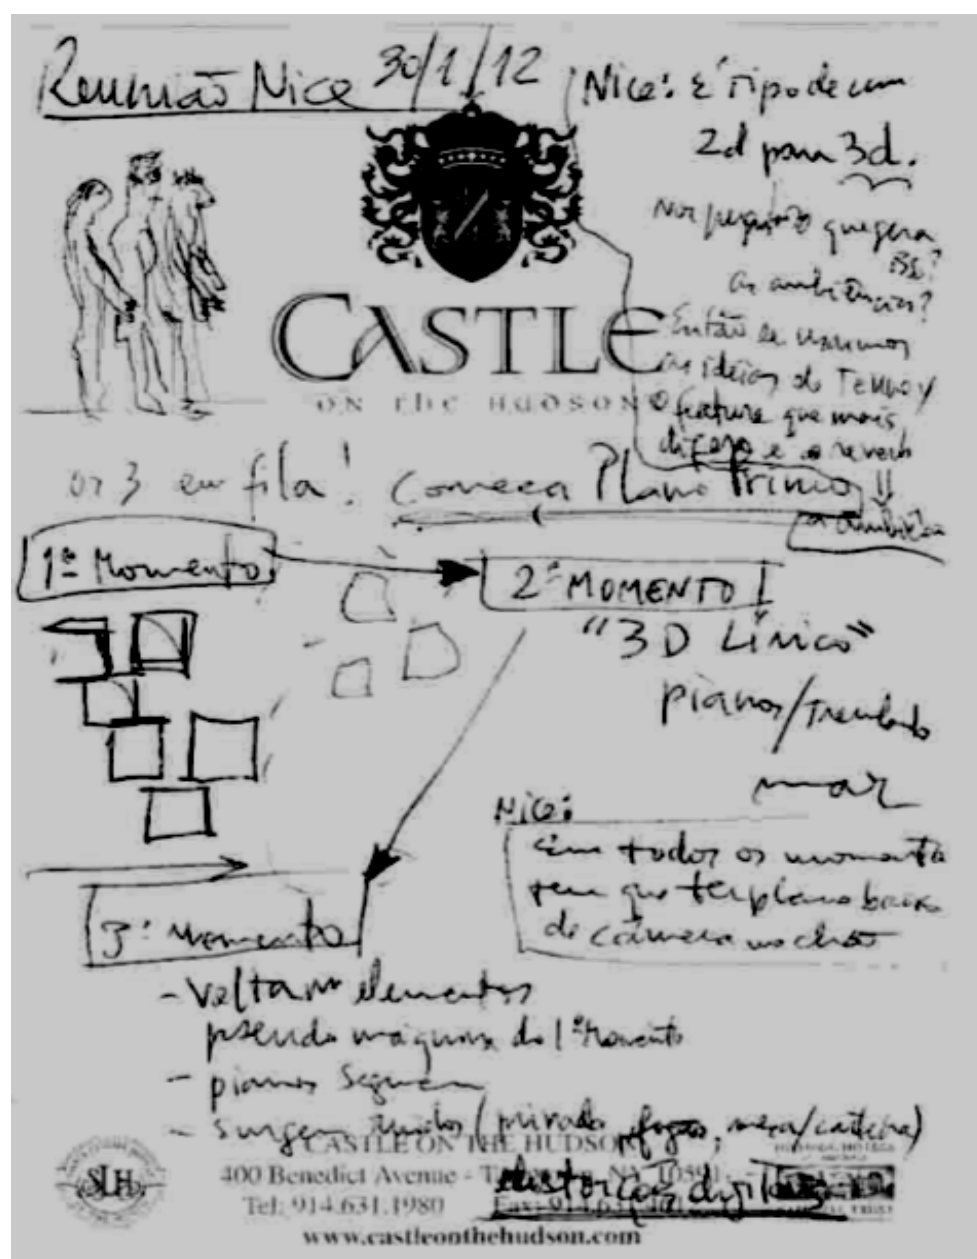 Reunião Nice 30/1/12
Nice: é tipo de um
2d para 3d.
que gera
as ambiências?
Então se usarmos
as ideias do Tempo y
o feature que mais
é o reverb
CASTLE
ON THE HUDSON
os 3 em fila! Começa Plano Primo
a ambiência
1º Momento
2º MOMENTO
"3D Lírico"
pianos/Tremolando
mar
Nice:
em todos os momentos
tem que ter plano baixo
de câmera no chão
3º Momento
- Voltam elementos
pseudo máquina do 1º Momento
- pianos seguem
- surgem ruídos ( fogão, mesa/cadeira)
distorção digital
CASTLE ON THE HUDSON
400 Benedict Avenue - NY 10591
Tel: 914.631.1980
SLH
www.castleonthehudson.com